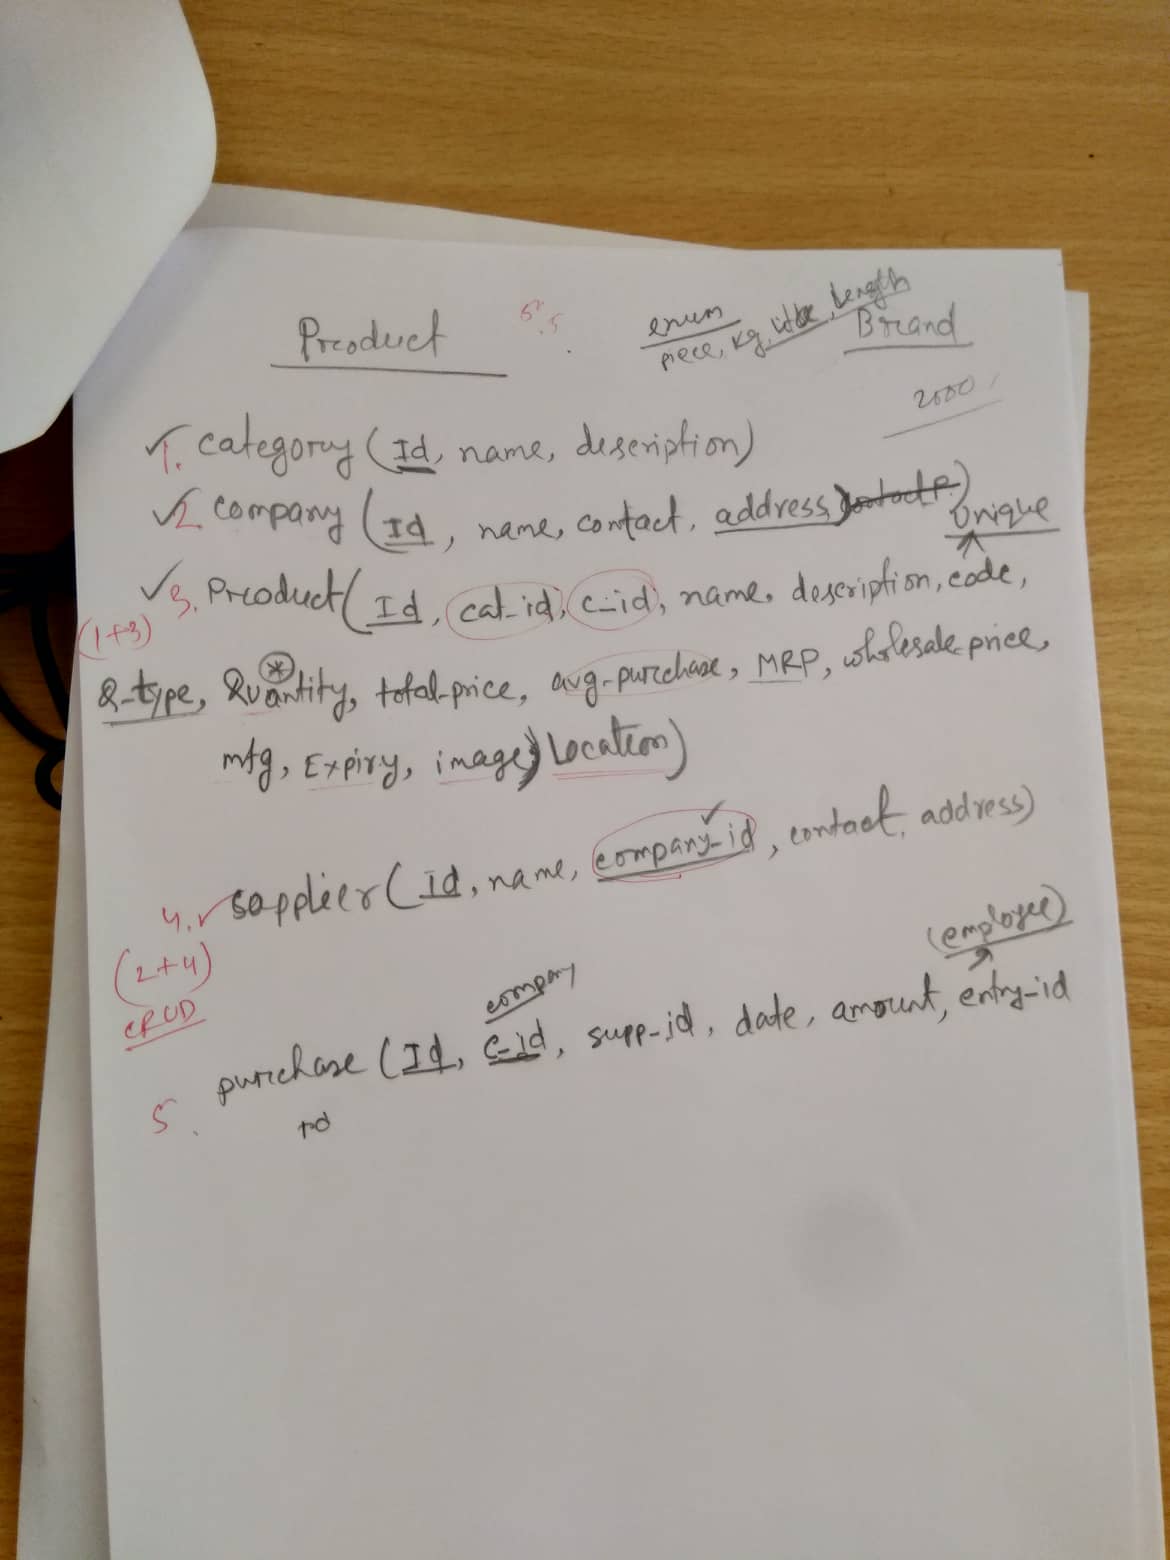 Product
5.5
enum
piece, kg, litre, Length
Brand
2000
1. Category (Id, name, description)
2. Company (Id, name, contact, address)
Unique
3. Product (Id, cat-id, c-id, name, description, code,
(1+3)
Q-type, Quantity, total-price, avg-purchase, MRP, wholesale-price,
mfg, Expiry, image) Location)
4. Supplier (id, name, company-id, contact, address)
(2+4)
CRUD
(employee)
company
5. purchase (Id, c-id, supp-id, date, amount, entry-id